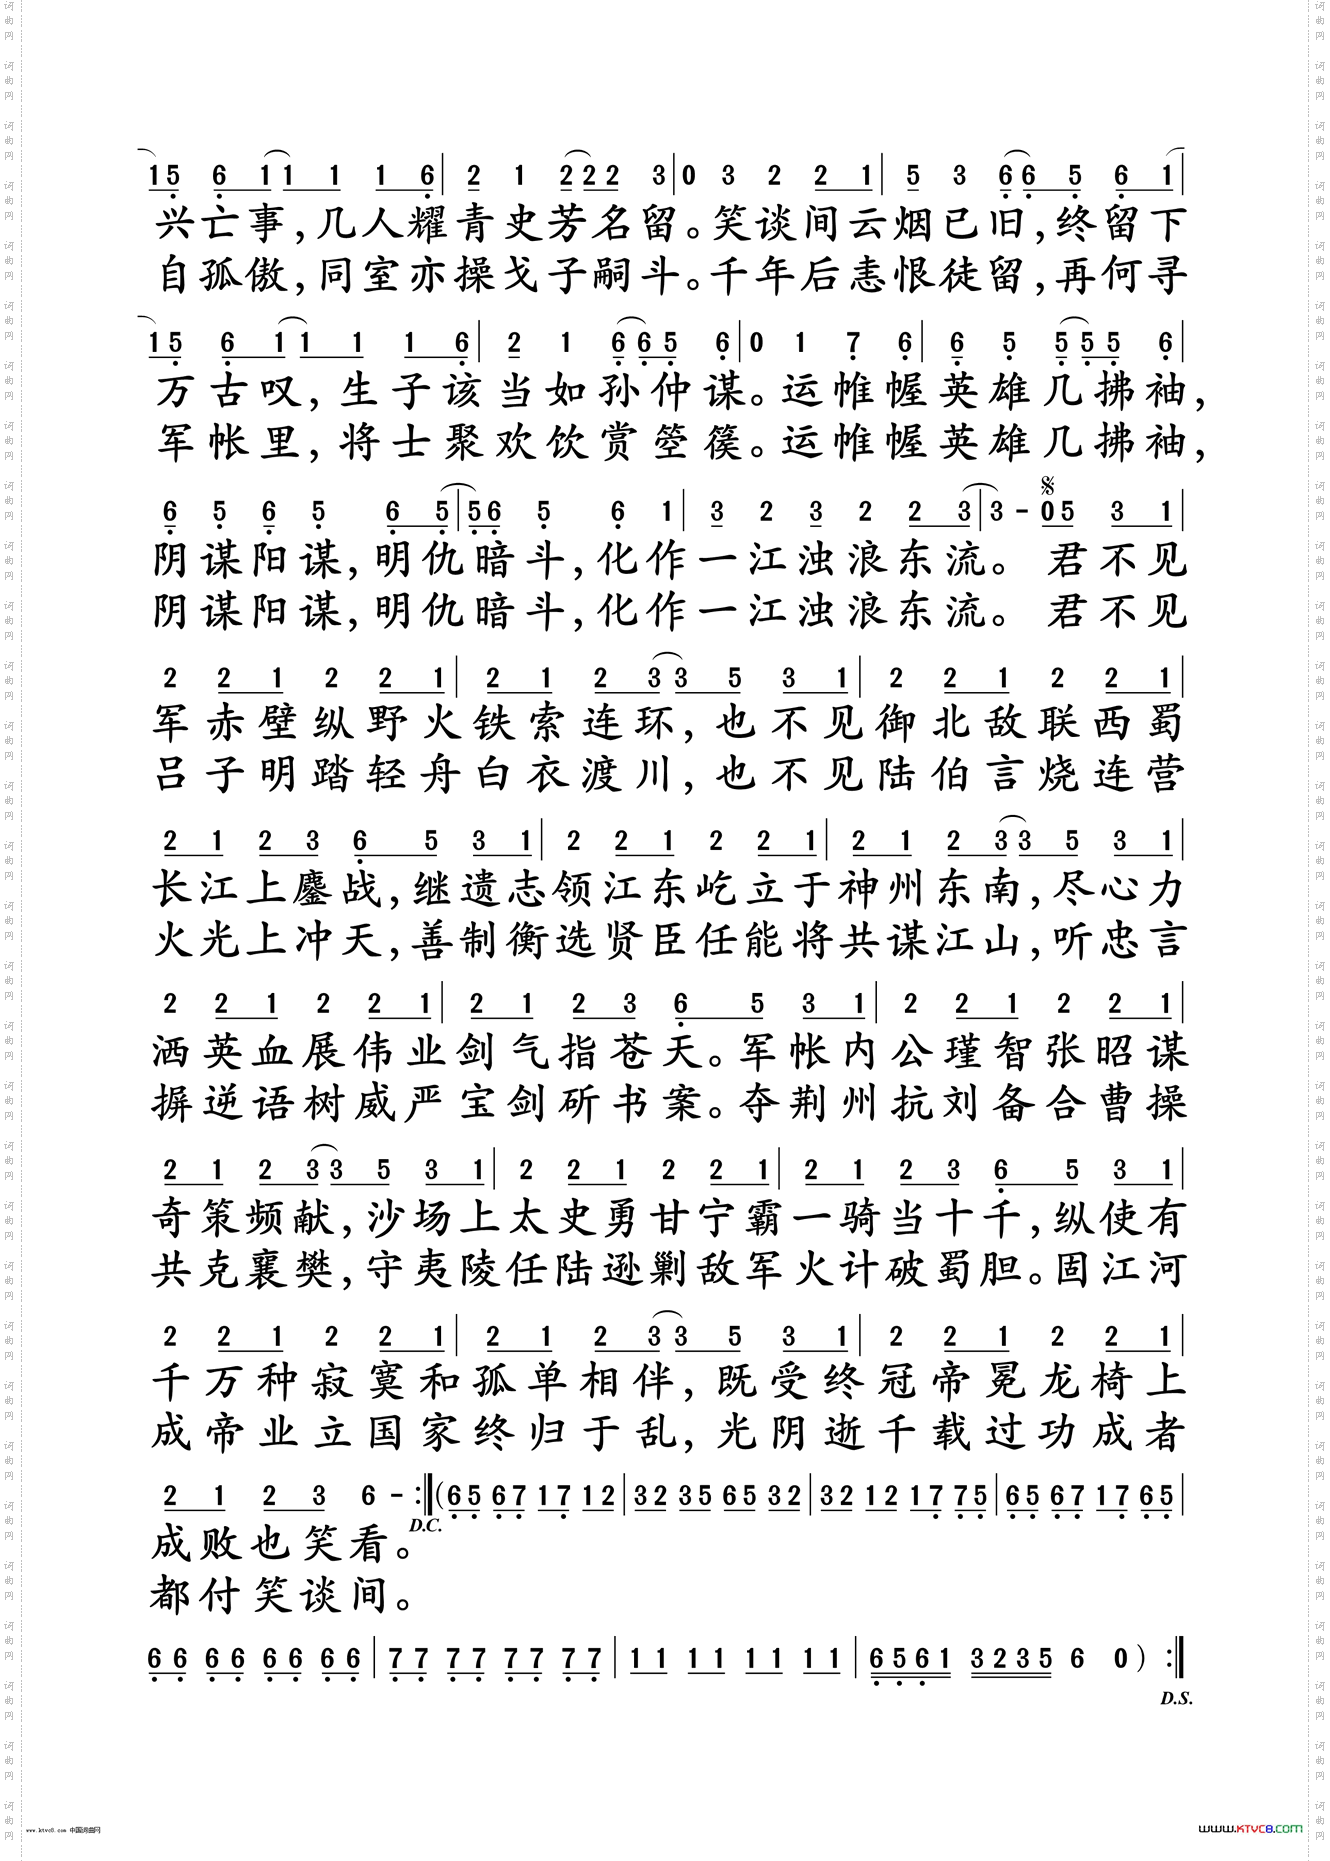 15 6 11 1 1 6|2 1 222 3|0 3 2 2 1|5 3 66 5 6 1|
兴亡事,几人耀青史芳名留。笑谈间云烟已旧,终留下
自孤傲,同室亦操戈子嗣斗。千年后恚恨徒留,再何寻
15 6 11 1 1 6|2 1 665 6|0 1 7 6|6 5 555 6|
万古叹,生子该当如孙仲谋。运帷幄英雄几拂袖,
军帐里,将士聚欢饮赏箜篌。运帷幄英雄几拂袖,
6 5 6 5 6 5|56 5 6 1|3 2 3 2 2 3|3 - 05 3 1|
阴谋阳谋,明仇暗斗,化作一江浊浪东流。 君不见
阴谋阳谋,明仇暗斗,化作一江浊浪东流。 君不见
2 2 1 2 2 1|2 1 2 33 5 3 1|2 2 1 2 2 1|
军赤壁纵野火铁索连环,也不见御北敌联西蜀
吕子明踏轻舟白衣渡川,也不见陆伯言烧连营
2 1 2 3 6 5 3 1|2 2 1 2 2 1|2 1 2 33 5 3 1|
长江上鏖战,继遗志领江东屹立于神州东南,尽心力
火光上冲天,善制衡选贤臣任能将共谋江山,听忠言
2 2 1 2 2 1|2 1 2 3 6 5 3 1|2 2 1 2 2 1|
洒英血展伟业剑气指苍天。军帐内公瑾智张昭谋
摒逆语树威严宝剑斫书案。夺荆州抗刘备合曹操
2 1 2 33 5 3 1|2 2 1 2 2 1|2 1 2 3 6 5 3 1|
奇策频献,沙场上太史勇甘宁霸一骑当十千,纵使有
共克襄樊,守夷陵任陆逊剿敌军火计破蜀胆。固江河
2 2 1 2 2 1|2 1 2 33 5 3 1|2 2 1 2 2 1|
千万种寂寞和孤单相伴,既受终冠帝冕龙椅上
成帝业立国家终归于乱,光阴逝千载过功成者
2 1 2 3 6 - :‖(65 67 17 12|32 35 65 32|32 12 17 75|65 67 17 65|
D.C.
成败也笑看。
都付笑谈间。
66 66 66 66|77 77 77 77|11 11 11 11|6561 3235 6 0) :‖
D.S.
www.ktvc8.com 中国词曲网
www.KTVC8.com
词曲网